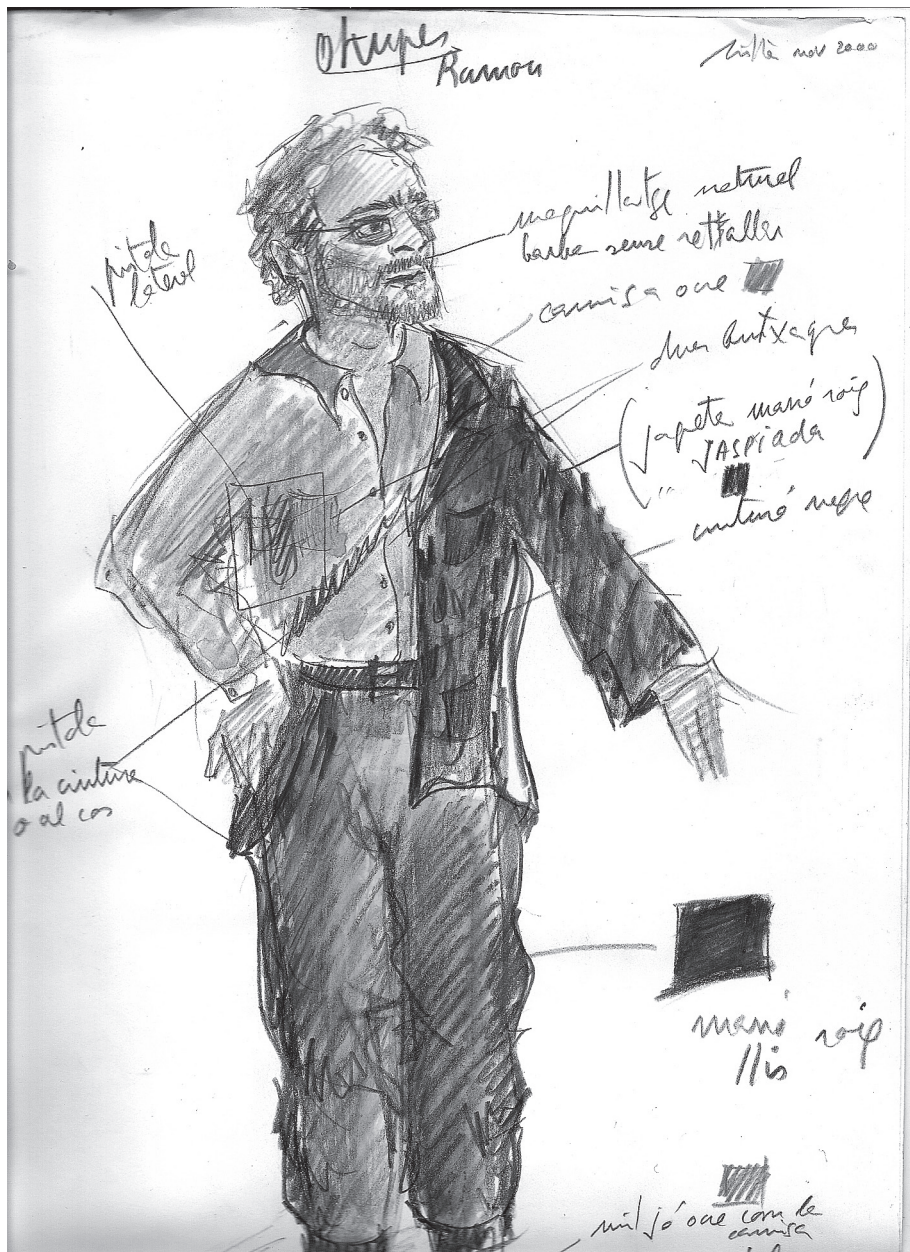 Okupes
Ramon
nov 2000
maquillatge natural
barba sense retallar
pistola
lateral
camisa ocre
dues butxaques
(jaqueta marró roig
JASPIADA
")
cinturó negre
pistola
la cintura
o al cos
marró roig
llis
mitjó ocre com la
camisa